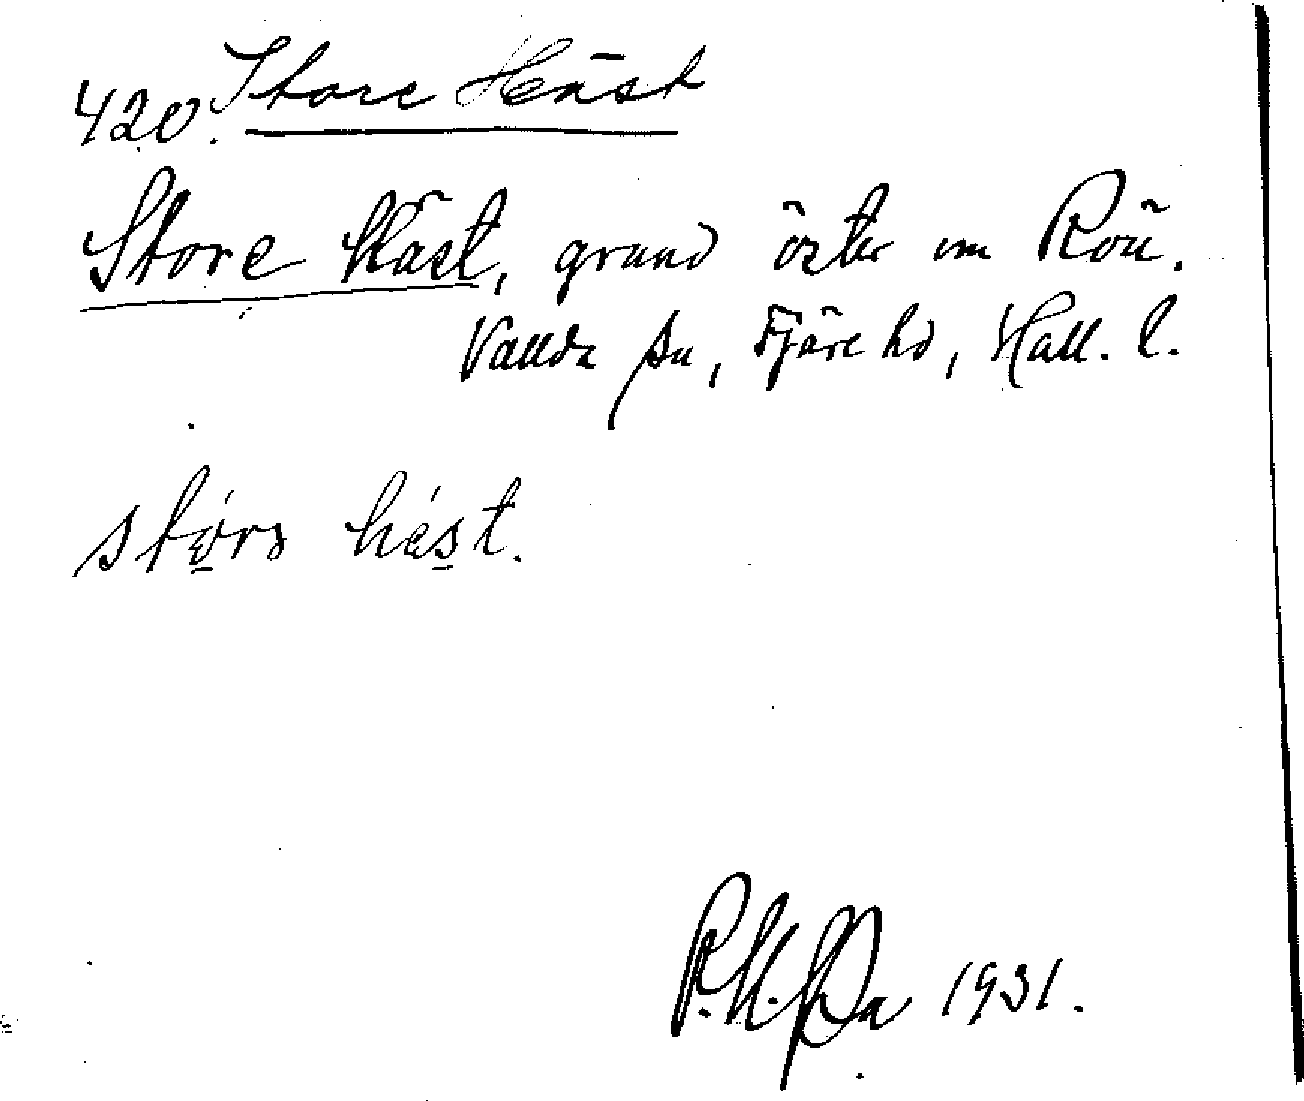 420. Store Häst
Store Häst, grund öster om Röü.
Vallda sn, Fjäre hd, Hall. l.
hást.
1931.